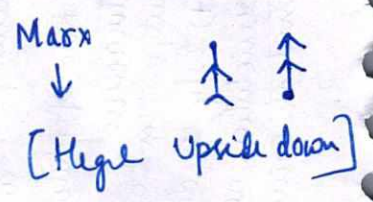 Marx
↓
[Hegel Upside down]